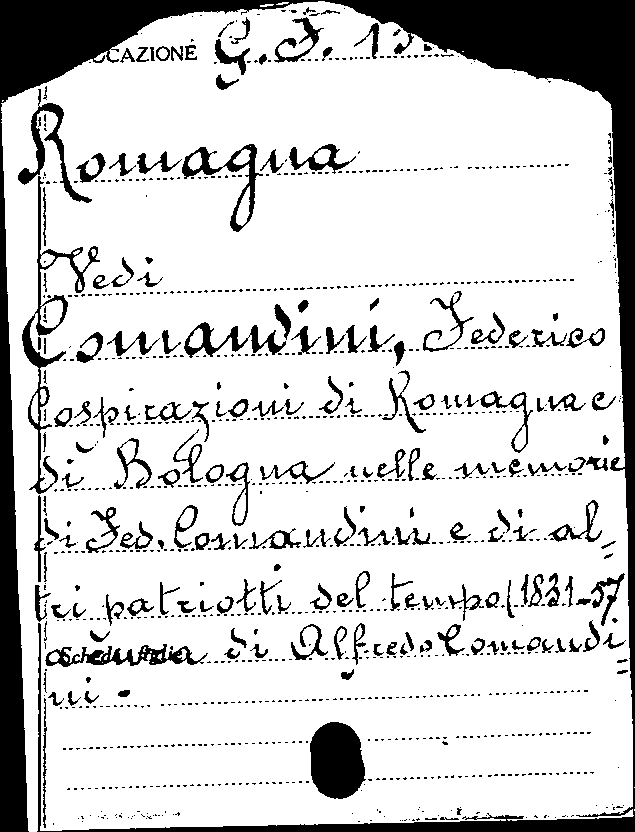 COLLOCAZIONE G. F. 13
Romagna
Vedi
Comandini, Federico
Cospirazioni di Romagna e
di Bologna nelle memorie
di Fed. Comandini e di al=
tri patriotti del tempo (1831-57
a cura di Alfredo Comandi=
ni -